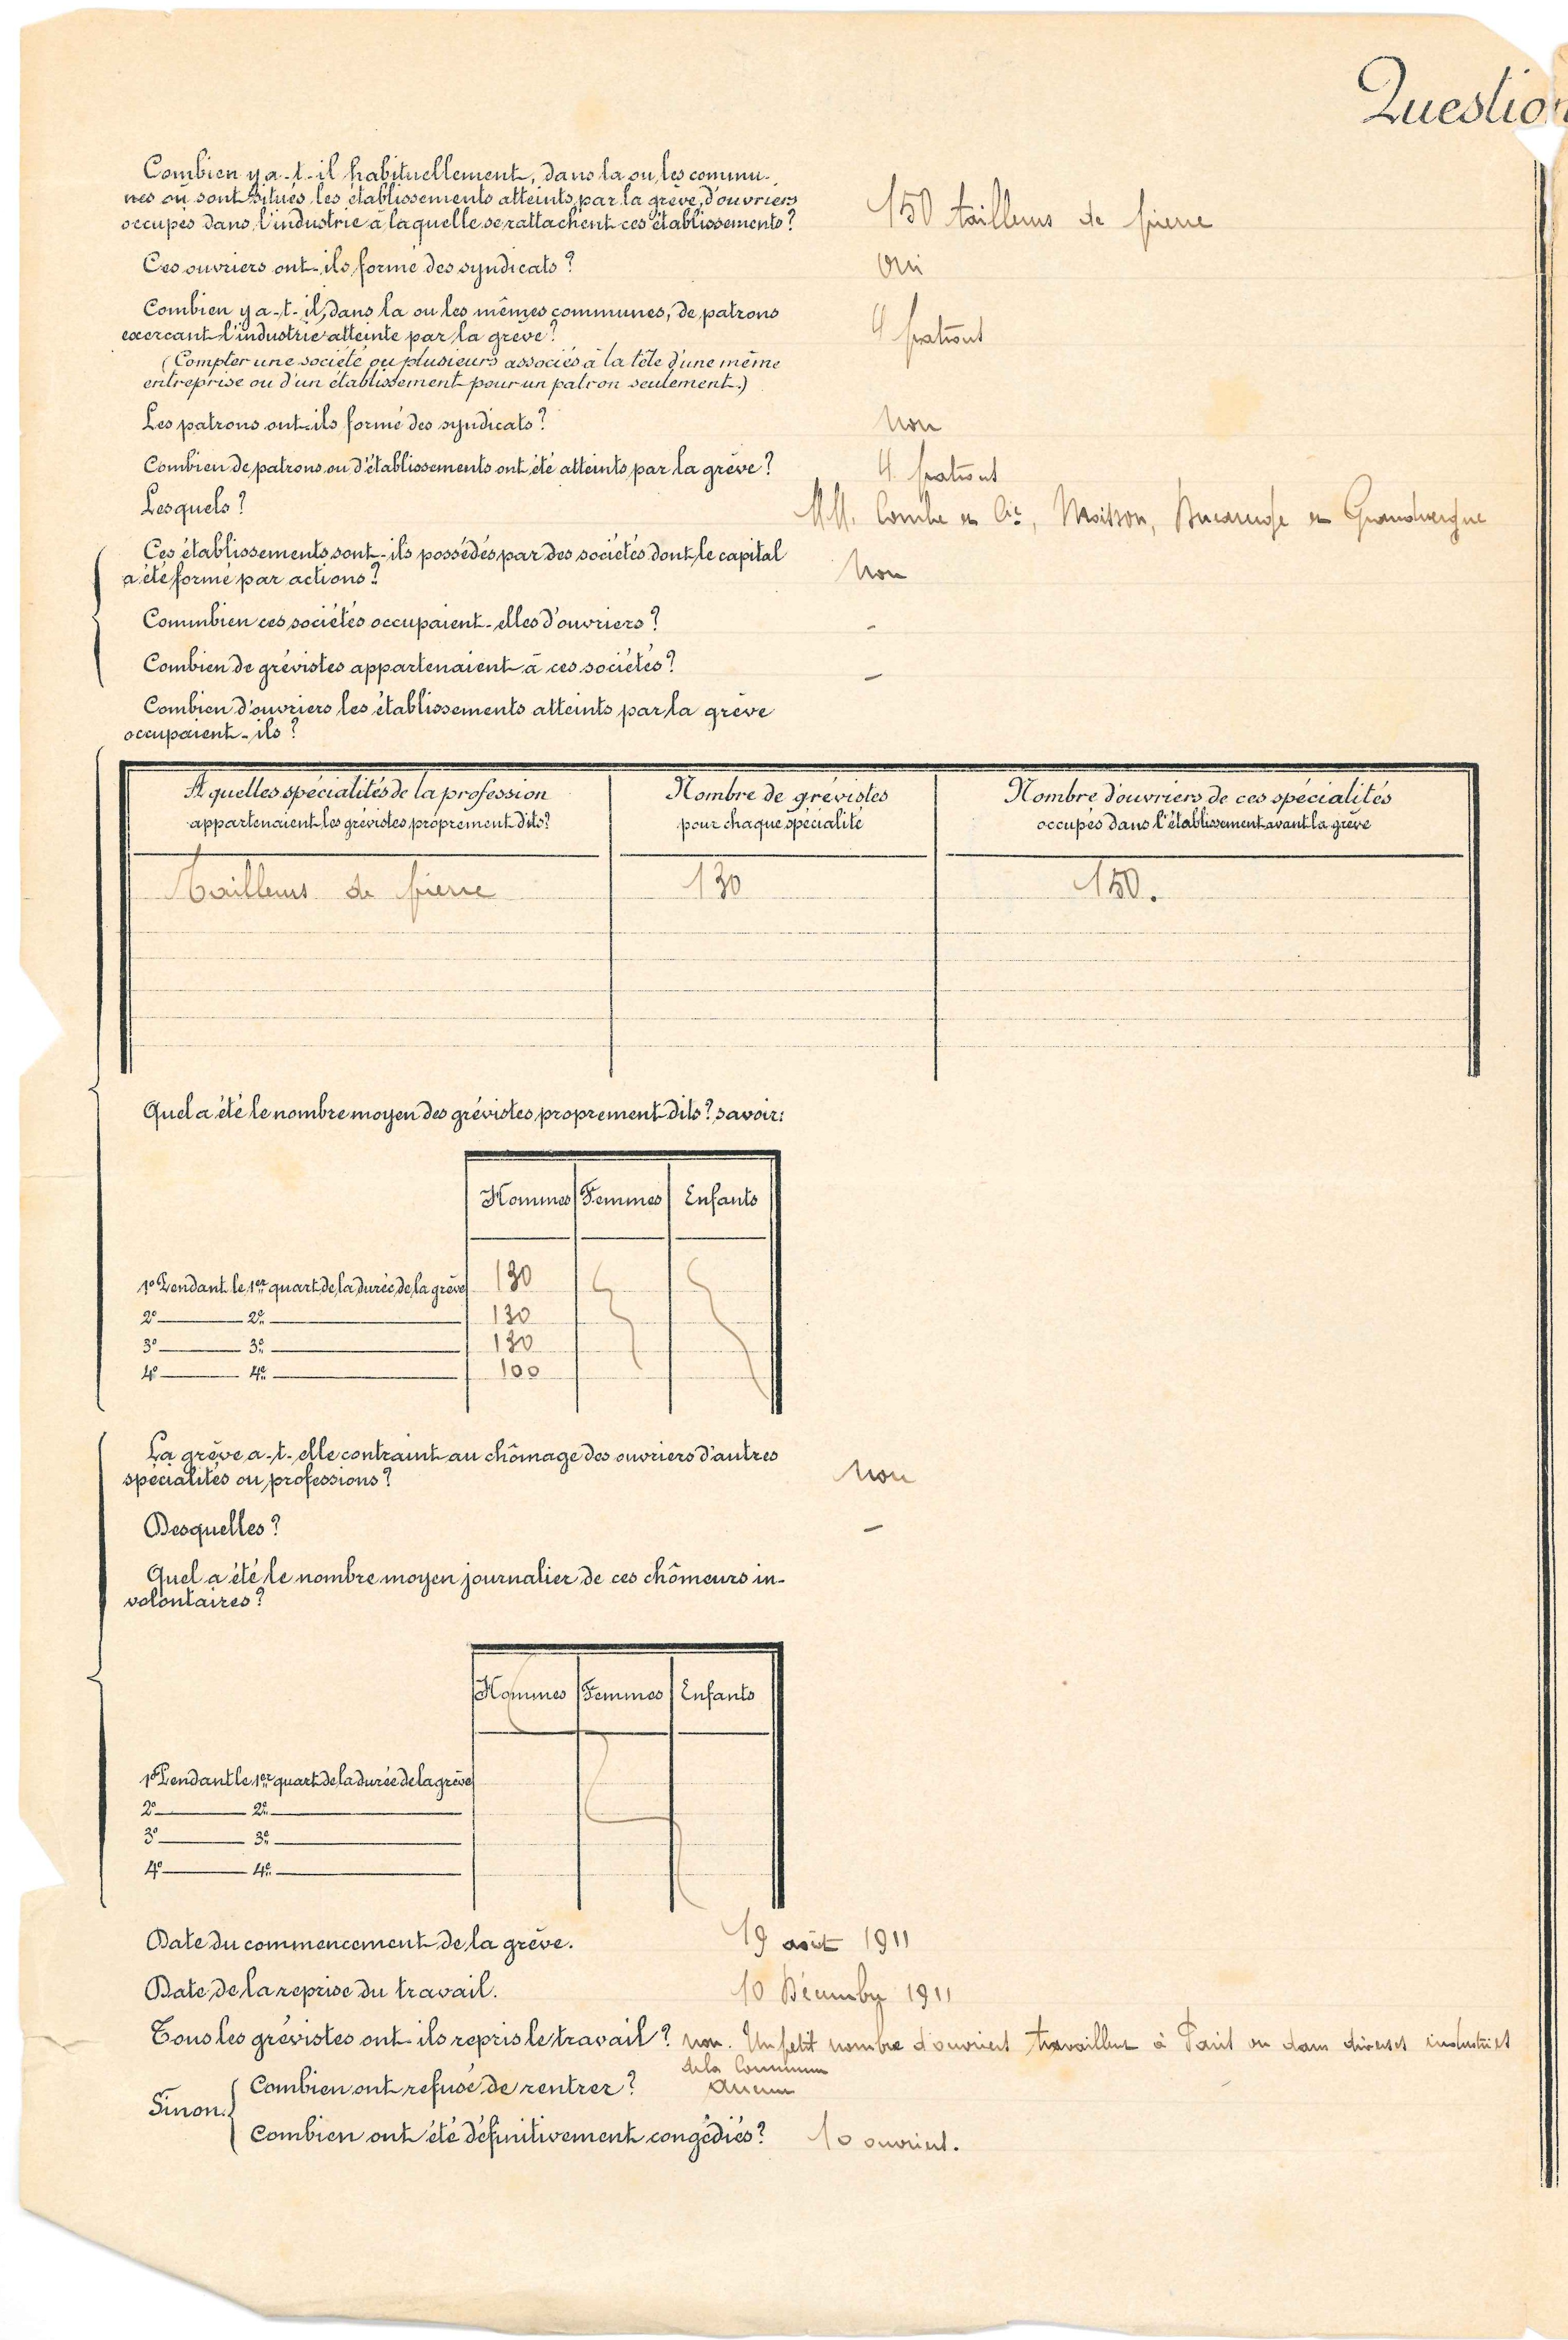 Question
Combien y a-t-il habituellement, dans la ou les commu-
nes où sont situés les établissements atteints par la grève, d'ouvriers
occupés dans l'industrie à laquelle se rattachent ces établissements?
150 tailleurs de pierre
Ces ouvriers ont-ils formé des syndicats?
Oui
Combien y a-t-il, dans la ou les mêmes communes, de patrons
exerçant l'industrie atteinte par la grève?
4 patrons
(Compter une société ou plusieurs associés à la tête d'une même
entreprise ou d'un établissement pour un patron seulement.)
Les patrons ont-ils formé des syndicats?
Non
Combien de patrons ou d'établissements ont été atteints par la grève?
4 patrons
Lesquels?
MM. Combe et Cie, Moisson, et Grandvergne
Ces établissements sont-ils possédés par des sociétés dont le capital
a été formé par actions?
Non
Commbien ces sociétés occupaient-elles d'ouvriers?
-
Combien de grévistes appartenaient à ces sociétés?
-
Combien d'ouvriers les établissements atteints par la grève
occupaient-ils?
A quelles spécialités de la profession
appartenaient les grévistes proprement dits?
Nombre de grévistes
pour chaque spécialité
Nombre d'ouvriers de ces spécialités
occupés dans l'établissement avant la grève
Tailleurs de pierre
130
150.
Quel a été le nombre moyen des grévistes proprement dits? savoir:
Hommes Femmes Enfants
1º Pendant le 1er quart de la durée de la grève 130
2º 2e 130
3º 3e 130
4º 4e 100
La grève a-t-elle contraint au chômage des ouvriers d'autres
spécialités ou professions?
Non
Desquelles?
-
Quel a été le nombre moyen journalier de ces chômeurs in-
volontaires?
Hommes Femmes Enfants
1º Pendant le 1er quart de la durée de la grève
2º 2e
3º 3e
4º 4e
Date du commencement de la grève. 19 août 1911
Date de la reprise du travail. 10 Décembre 1911
Tous les grévistes ont-ils repris le travail? non. Un petit nombre d'ouvriers travaillent à Paris ou dans diverses industries
de la Commune
Sinon.
Combien ont refusé de rentrer? Aucun
Combien ont été définitivement congédiés? 10 ouvriers.